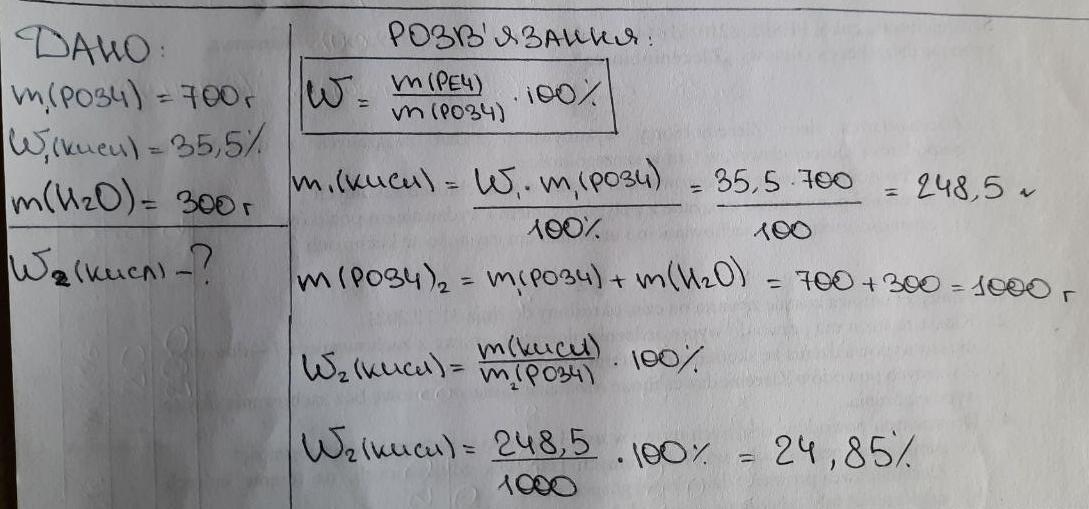 ДАНО:
m₁(РОЗЧ) = 700 г
W₁(кисл) = 35,5%
m(H₂O) = 300 г
W₂(кисл) – ?
РОЗВ'ЯЗАННЯ:
W = m(РЕЧ) / m(РОЗЧ) · 100%
m₁(кисл) = W₁ · m₁(РОЗЧ) / 100% = 35,5 · 700 / 100 = 248,5 г
m(РОЗЧ)₂ = m₁(РОЗЧ) + m(H₂O) = 700 + 300 = 1000 г
W₂(кисл) = m(кисл) / m₂(РОЗЧ) · 100%
W₂(кисл) = 248,5 / 1000 · 100% = 24,85%